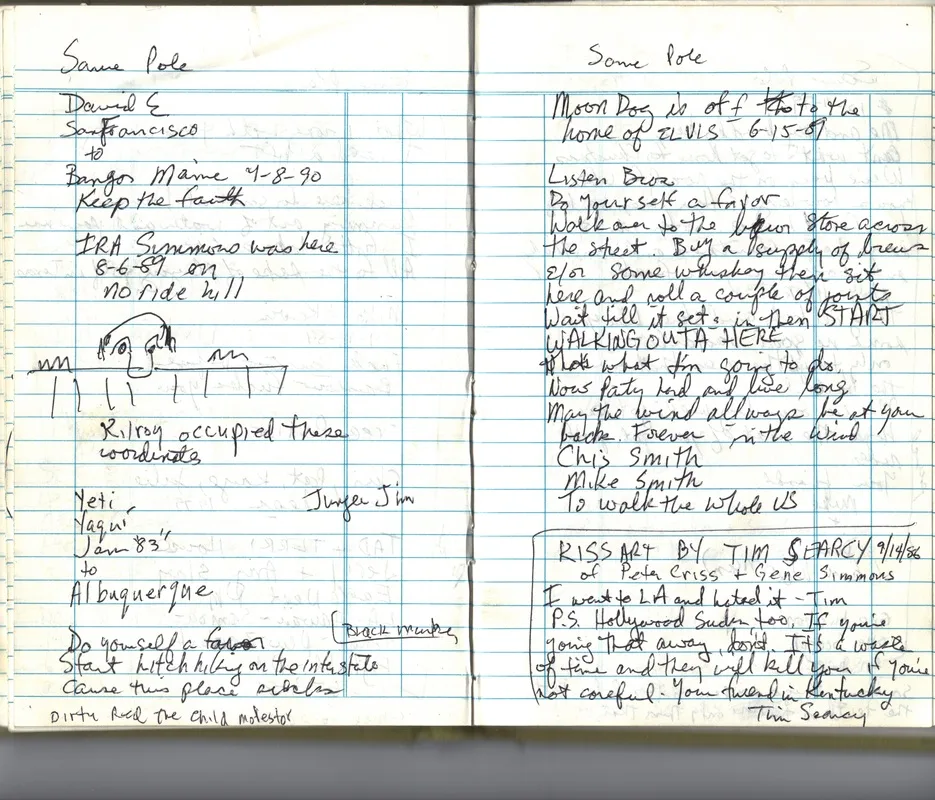 Same Pole
David E
San Francisco
to
Bangor Maine 4-8-90
Keep the faith
IRA Simmons was here
8-6-89 on
no ride hill
Kilroy occupied these
coordinates
Yeti
Yaqui
Jam '83"
to
Albuquerque
Jim
Black
Do yourself a favor
Start hitch hiking on the interstate
Cause this place sucks
Dirty the child molestor
Same Pole
Moon Dog is off to the
home of ELVIS 6-15-89
Listen Bros
Do yourself a favor
Walk over to the liquor store across
the street. Buy a supply of brews
&/or some whiskey then sit
here and roll a couple of joints
Wait till it sets in then START
WALKING OUTA HERE
thats what I'm going to do
Now Paty hard and live long
May the wind allways be at your
back. Forever in the wind
Chis Smith
Mike Smith
To walk the whole US
KISS ART BY TIM SEARCY 9/14/86
of Peter Criss + Gene Simmons
I went to LA and hated it - Tim
P.S. Hollywood Sucks too, If you're
going that away, don't. It's a waste
of time and they will kill you if you're
not careful. Your friend in Kentucky
Tim Searcy